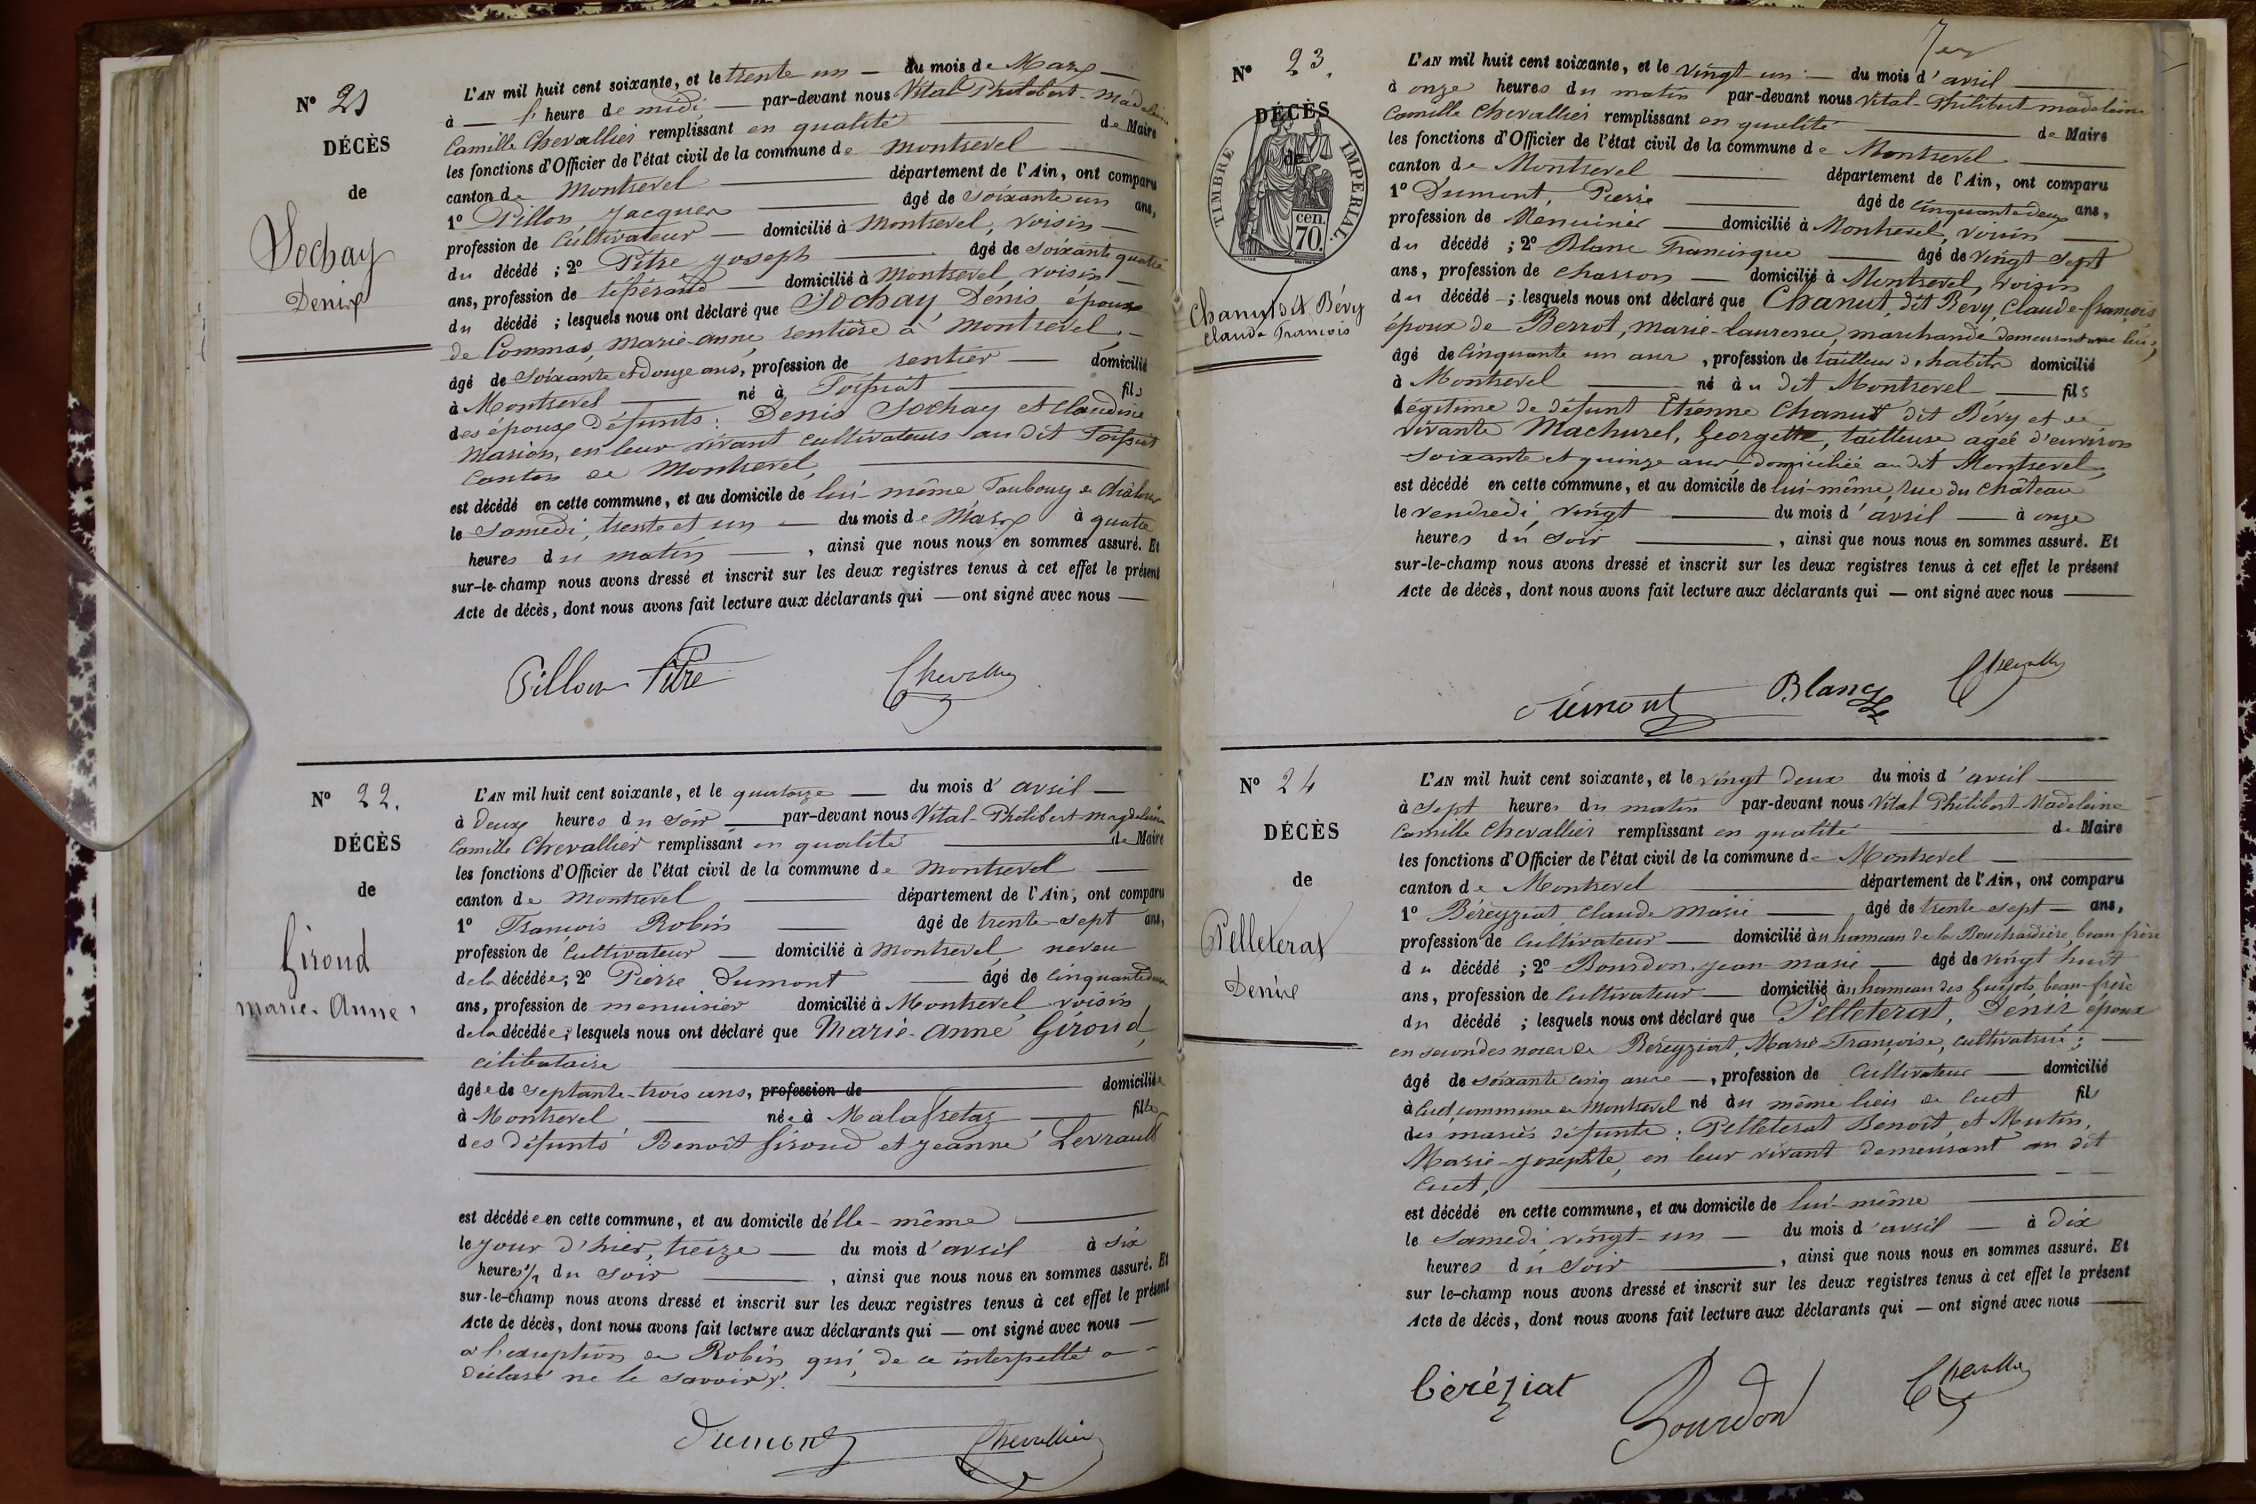 N° 21
DÉCÈS
de
Sochay
Denis
L'AN mil huit cent soixante, et le trente un — du mois de Mars —
à — l'heure de midi — par-devant nous Vital Philibert-Madeleine
Camille Chevallier remplissant en qualité — de Maire
les fonctions d'Officier de l'état civil de la commune de Montrevel —
canton de Montrevel — département de l'Ain, ont comparu
1° Pillon Jacques — âgé de soixante un ans,
profession de Cultivateur — domicilié à Montrevel, voisin —
du décédé ; 2° Pitre Joseph — âgé de soixante quatre
ans, profession de — domicilié à Montrevel, voisin —
du décédé ; lesquels nous ont déclaré que Sochay, Dénis, époux
de Commas, Marie-anne rentière à Montrevel, —
âgé de Soixante et douze ans, profession de rentier — domicilié
à Montrevel — né à Foissiat — fils
des époux défunts : Denis Sochay et Claudine
Marion, en leur vivant cultivateurs au dit Foissiat
Canton de Montrevel —
est décédé en cette commune, et au domicile de lui-même Faubourg de Châlons
le Samedi, trente et un — du mois de Mars à quatre
heures du matin —, ainsi que nous nous en sommes assuré. Et
sur-le-champ nous avons dressé et inscrit sur les deux registres tenus à cet effet le présent
Acte de décès, dont nous avons fait lecture aux déclarants qui — ont signé avec nous —
Pillon Pitre Chevallier
N° 22.
DÉCÈS
de
Giroud
marie-Anne
L'AN mil huit cent soixante, et le quatorze — du mois d'avril —
à deux heures du soir — par-devant nous Vital-Philibert magdeleine
Camille Chevallier remplissant en qualité — de Maire
les fonctions d'Officier de l'état civil de la commune de Montrevel —
canton de Montrevel — département de l'Ain, ont comparu
1° François Robin — âgé de trente-sept ans,
profession de Cultivateur — domicilié à Montrevel, neveu
de la décédée ; 2° Pierre Dumont — âgé de cinquante deux
ans, profession de menuisier domicilié à Montrevel voisin
de la décédée ; lesquels nous ont déclaré que Marie-anne Giroud,
célibataire —
âgée de septante-trois ans, profession de — domiciliée
à Montrevel — née à Malafretaz — fille
des défunts Benoît Giroud et Jeanne Levrault
est décédée en cette commune, et au domicile d'elle-même —
le jour d'hier, treize — du mois d'avril à six
heures 1/2 du soir —, ainsi que nous nous en sommes assuré. Et
sur-le-champ nous avons dressé et inscrit sur les deux registres tenus à cet effet le présent
Acte de décès, dont nous avons fait lecture aux déclarants qui — ont signé avec nous —
à l'exception de Robin qui, de ce interpellé a —
déclaré ne le savoir.
Dumont Chevallier
N° 23.
DÉCÈS
de
TIMBRE IMPERIAL
cen. 70.
Chanut dit Bévy
Claude François
L'AN mil huit cent soixante, et le vingt un — du mois d'avril —
à onze heures du matin par-devant nous Vital-Philibert madeleine
Camille Chevallier remplissant en qualité — de Maire
les fonctions d'Officier de l'état civil de la commune de Montrevel —
canton de Montrevel — département de l'Ain, ont comparu
1° Dumont, Pierre — âgé de cinquante deux ans,
profession de Menuisier — domicilié à Montrevel, voisin —
du décédé ; 2° Blanc Francisque — âgé de vingt sept
ans, profession de charron — domicilié à Montrevel, voisin
du décédé ; lesquels nous ont déclaré que Chanut, dit Bévy, Claude-françois
époux de Berrot, marie-laurence, marchande demeurant avec lui,
âgé de cinquante un ans, profession de tailleur d'habits domicilié
à Montrevel — né au dit Montrevel — fils
légitime de défunt Etienne Chanut dit Bévy et de
vivante Machurel, Georgette, tailleuse agée d'environ
soixante et quinze ans, domiciliée au dit Montrevel,
est décédé en cette commune, et au domicile de lui-même, rue du Château
le vendredi vingt — du mois d'avril — à onze
heures du soir —, ainsi que nous nous en sommes assuré. Et
sur-le-champ nous avons dressé et inscrit sur les deux registres tenus à cet effet le présent
Acte de décès, dont nous avons fait lecture aux déclarants qui — ont signé avec nous —
Dumont Blanc Chevallier
N° 24
DÉCÈS
de
Pelleterat
Denis
L'AN mil huit cent soixante, et le vingt deux du mois d'avril —
à sept heures du matin par-devant nous Vital Philibert Madeleine
Camille Chevallier remplissant en qualité — de Maire
les fonctions d'Officier de l'état civil de la commune de Montrevel —
canton de Montrevel — département de l'Ain, ont comparu
1° Béreyziat Claude Marie — âgé de trente sept — ans,
profession de Cultivateur — domicilié au hameau de la Bouchardière, beau-frère
du décédé ; 2° Bourdon, Jean-marie — âgé de vingt huit
ans, profession de Cultivateur — domicilié au hameau des Guyots beau-frère
du décédé ; lesquels nous ont déclaré que Pelleterat, Dénis époux
en secondes noces de Béreyziat, Marie-Françoise, cultivatrice ; —
âgé de soixante cinq ans —, profession de Cultivateur — domicilié
à Cuet commune de Montrevel né au même lieu de Cuet fils
des mariés défunts : Pelleterat Benoît, et Mutin,
Marie-Josephte, en leur vivant demeurant au dit
Cuet, —
est décédé en cette commune, et au domicile de lui-même —
le Samedi vingt-un — du mois d'avril — à dix
heures du soir —, ainsi que nous nous en sommes assuré. Et
sur le-champ nous avons dressé et inscrit sur les deux registres tenus à cet effet le présent
Acte de décès, dont nous avons fait lecture aux déclarants qui — ont signé avec nous —
béréziat Bourdon Chevallier